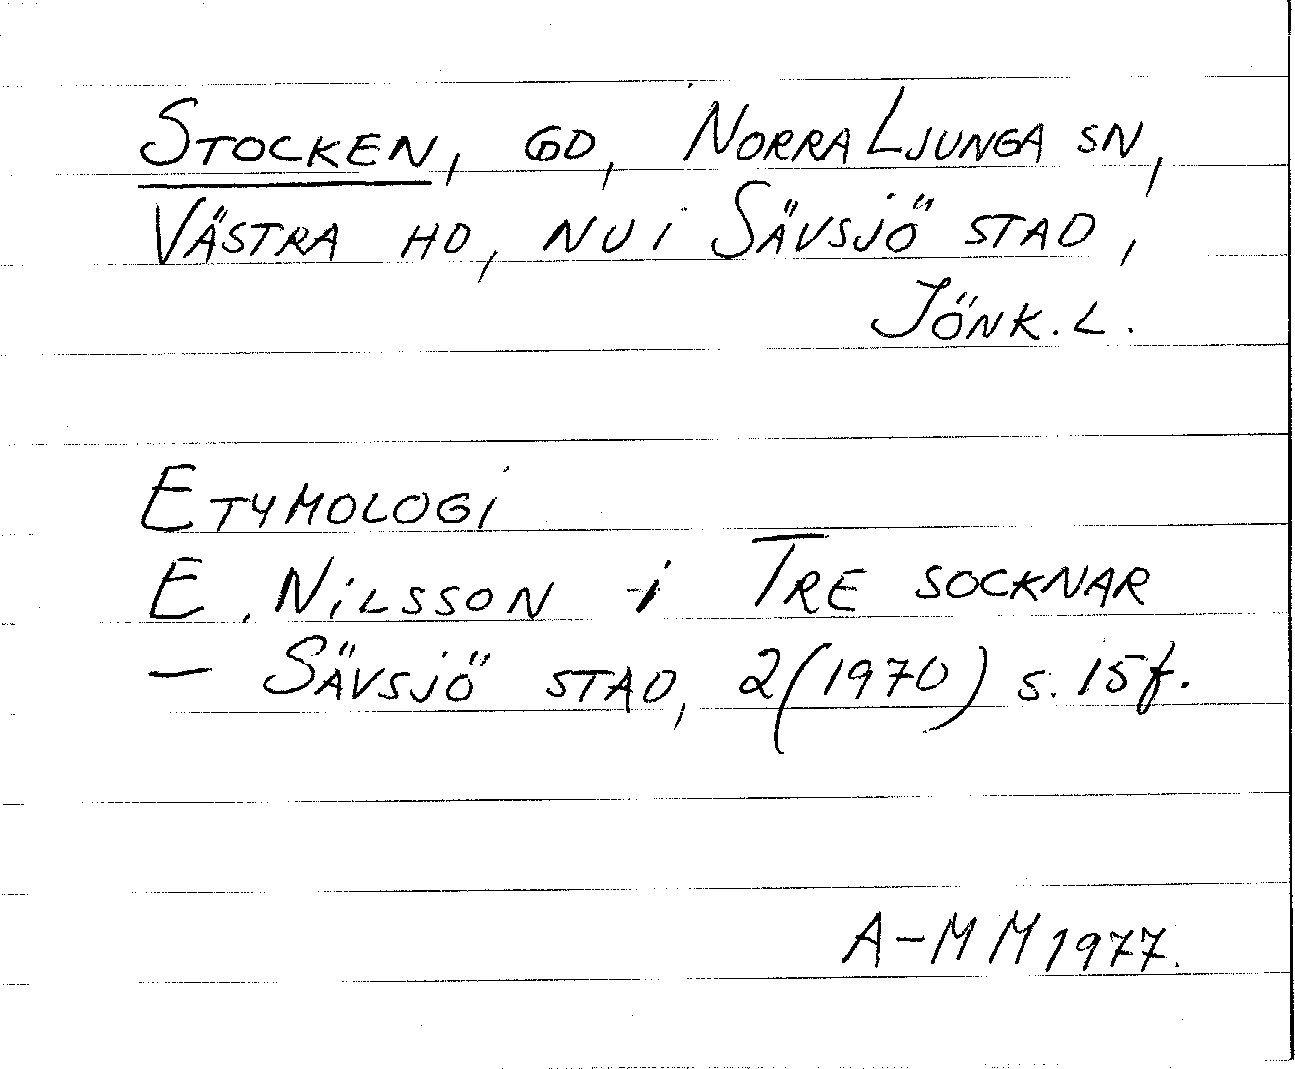 STOCKEN, GD, NORRA LJUNGA SN,
VÄSTRA HD, NU i SÄVSJÖ STAD,
JÖNK. L.
ETYMOLOGI
E. NILSSON i TRE SOCKNAR
– SÄVSJÖ STAD, 2 (1970) s. 15 f.
A-MM 1977.